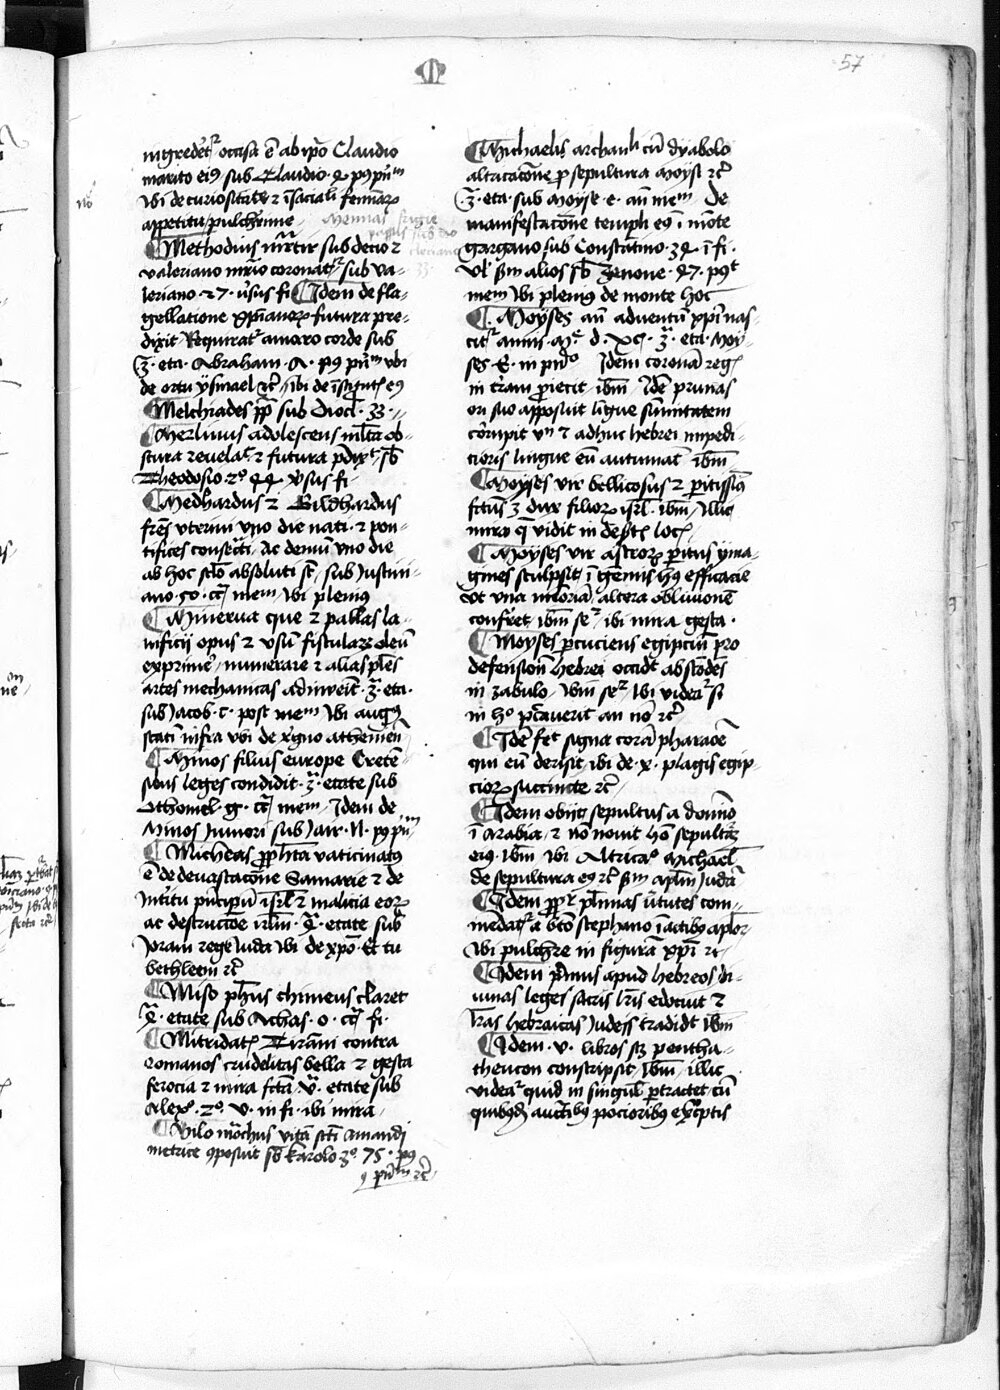 57
M
ingredet᷑ occisa ē ab ip̄o Claudio
marito eiꝰ sub Claudio · q · pꝰ pn̄m
vbi de curiositate ⁊ ī feminarꝝ
appetitu pulcherrime
Methodius mr̄tir sub decio ⁊
valeriano mr̄io coronat᷑ sub va-
leriano · 27 · v̓sus fi Idem de fla-
gellatione xp̄ianorꝝ futura pre-
dixit Requirat᷑ amaro corde sub
3̄ · eta · Abraham · A · pꝰ pn̄m vbi
de ortu ysmael ⁊c̄ ibi de
Melchiades pp̄ sub Diocl̄ · 33 ·
Merlinus adolescens ml̄ta ob-
scura reuelat᷑ ⁊ futura p̄dixᵗ sb̄
Theodosio 2º 44 v̓sus fi ·
Medhardus ⁊ Gildhardus
fr̄es vterini vno die nati · ⁊ pon-
tifices consec̄ti · Ac demū vno die
ab hoc scl̄o absoluti st̄ sub Justini-
ano · 50 · mem̄ vbi plenius
Minerua que ⁊ pallas la-
nificij opus ⁊ vsū fistularꝝ oleū
exprimē numerare ⁊ alias pl̄es
artes mechanicas adinuēit · 3̄ · eta ·
sub Jacob · C · post mem̄ vbi
statī infra vbi de regno athenien̄
Minos filius europe Creten̄-
sibus leges condidit · 3̄ · etate sub
Othoniel · g · mem̄ Idem de
Minos Juniori sub Jair · N · pꝰ pn̄m
Micheas ꝓph̄ta vaticinatꝰ
ē de deuastacōne Samarie ⁊ de
Int̄itu principū isrl̄ ⁊ malicia eorꝝ
ac destrucciōe irl̄m · 4̄ · etate sub
Joram rege Juda vbi de xp̄o · Et tu
bethleem ⁊c̄
Miso ph̄us chineus claret
4̄ · etate sub Achas · o · fi ·
Mitridatꝭ Tirāni contra
romanos crudelitas bella ⁊ gesta
ferocia ⁊ mira fc̄ta · v̄ · etate sub
Alexº · 2º · v · in fi · ibi mira ·
Milo mōchus vitā scī Amandi
metrice ꝯposuit sb̄ karolo 3º · 75 · pꝰ
pn̄m ⁊c̄
Michaelis archanl̄i cū dyabolo
altricacōne ꝓ sepultura Moysi ⁊c̄
3̄ · eta · sub Moyse · e · an̄ mem̄ De
manifestacōne templi eiꝰ ī mōte
gargano sub Constātino · 34 · ī fi ·
vl̄ sm̄ alios sb̄ Zenone · 47 · pꝰᵗ
mem̄ vbi pleniꝰ de monte hoc
Moyses an̄ aduentū xp̄i nas-
cit᷑ annis · · 3̄ · eta · Moy-
ses · E · in pn̄º Idem coronā regꝭ
in tr̄am ꝓiecit ibm̄ Idē prunas
ori suo apposuit ligue sum̄itatem
corrupit vn̄ ⁊ adhuc hebrei impedi-
cioris lingue eū autumāt ibm̄
Moyses vir bellicosus ⁊ peritissimꝰ
fit dux filiorꝝ isrl̄ · ibm̄ illic
mira q̄ vidit in
Moyses vir astrorꝝ peritus yma-
gines sculpsit ī gēmis huiꝰ efficacie
vt vna memoriā altera obliuionē
confr̄et ibm̄ se᷑ ibi mira gesta ·
Moyses percuciens egipciū pro
defensione hebrei occidit abscōdēs
in zabulo · ibm̄ se᷑ vbi videat᷑ si
in hº peccauerit an nō ⁊c̄
Idē fec̄ signa corā pharaōe
qui eū derisit ibi de · x · plagis egip-
ciorꝝ succincte ⁊c̄
Idem obijt sepultus a dominō
ī Arabia ⁊ nō nouit hō sepultr̄ā
eiꝰ · ibm̄ vbi Michael
de sepultura eiꝰ ⁊c̄ sm̄ aplm̄ Judā
Idem ꝓpt᷑ pl̄rimas v̓tutes com-
mēdat᷑ a bt̄o stephano ī actibꝰ aplor̄
vbi pulchre in figurā xp̄i ⁊c
Idem p̄mus apud hebreos di-
uinas leges sacris lr̄is edocuit ⁊
lr̄as hebraicas Judeis tradidit ibm̄
Idem · v · libros sꝫ pentha-
theucon conscripsit · ibm̄ illic
videat᷑ quid in singul̄ pertractet cū
quibꝰdā auctorībꝰ pocioribꝰ exceptis